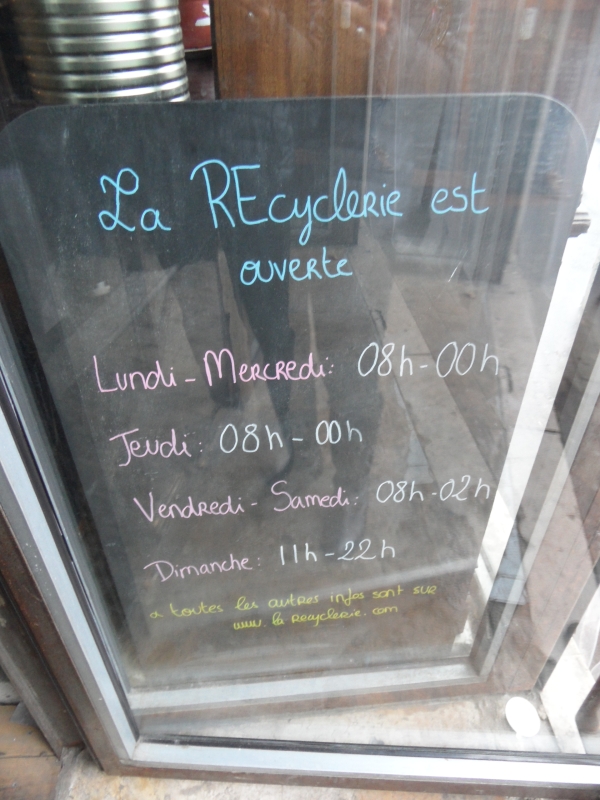 La REcyclerie est
ouverte
Lundi - Mercredi: 08h-00h
Jeudi: 08h - 00h
Vendredi - Samedi: 08h-02h
Dimanche: 11h-22h
toutes les autres infos sont sur
www.larecyclerie.com